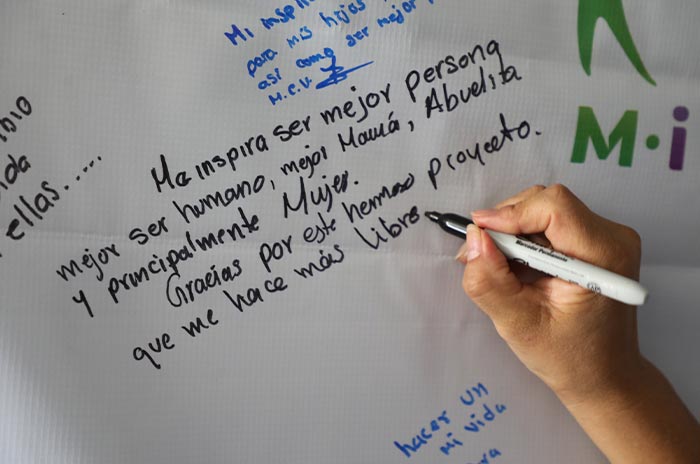 Mi inspi
para mis hijas
así como ser mejor
M.C.V.
Me inspira ser mejor persona
mejor ser humano, mejor Mamá, Abuelita
y principalmente Mujer.
Gracias por este hermoso proyecto.
que me hace más libre
ellas.....
M·i
hacer un
mi vida
Marcador Permanente